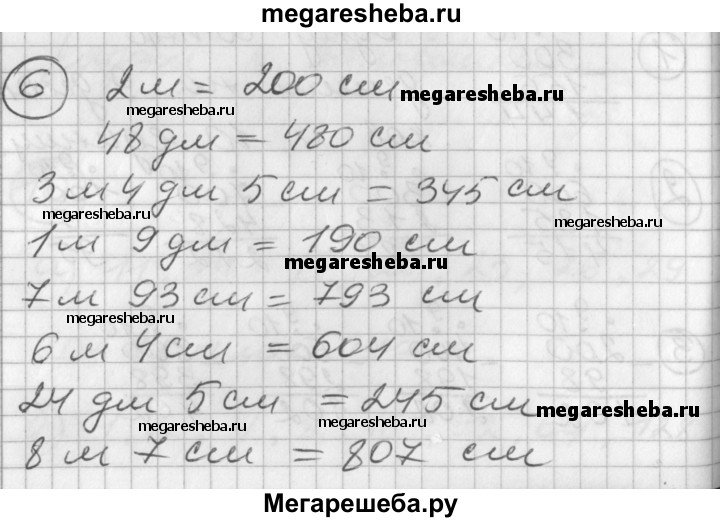 megaresheba.ru
6 2 м = 200 см megaresheba.ru
megaresheba.ru
48 дм = 480 см
3 м 4 дм 5 см = 345 см
megaresheba.ru megaresheba.ru
1 м 9 дм = 190 см
megaresheba.ru
7 м 93 см = 793 см
megaresheba.ru
6 м 4 см = 604 см
24 дм 5 см = 245 см megaresheba.ru
megaresheba.ru megaresheba.ru
8 м 7 см = 807 см
Мегарешеба.ру